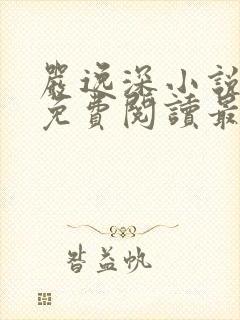 嚴逸深小說
免費閱讀最
昝益帆